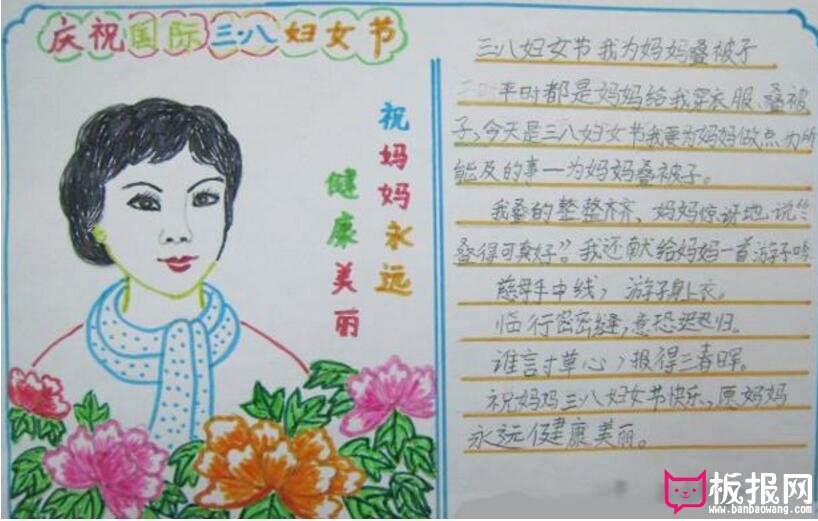 庆祝国际三·八妇女节
祝妈妈永远
健康美丽
三八妇女节我为妈妈叠被子
平时都是妈妈给我穿衣服、叠被
子,今天是三八妇女节我要为妈妈做点力所
能及的事一为妈妈叠被子。
我叠的整整齐齐、妈妈惊讶地说“
叠得可真好”。我还献给妈妈一首游子吟
慈母手中线,游子身上衣。
临行密密缝,意恐迟迟归。
谁言寸草心,报得三春晖。
祝妈妈三八妇女节快乐、愿妈妈
永远健康美丽。
板报网
www.banbaowang.com